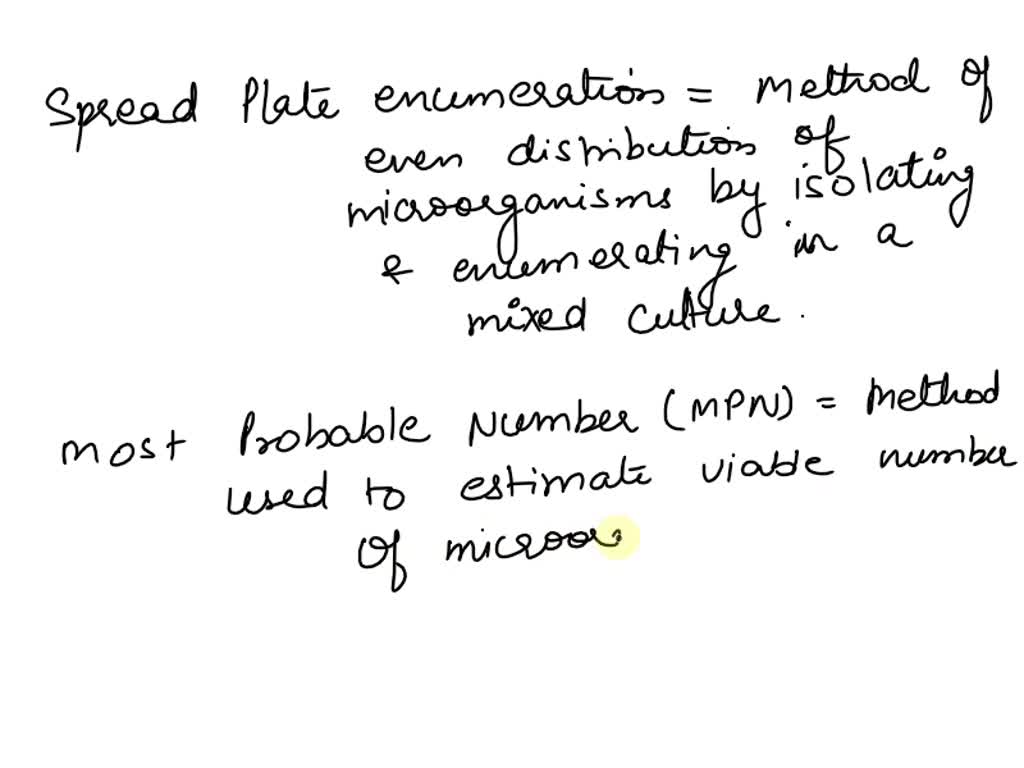 Spread Plate enumeration = Method of
even distribution of
microorganisms by isolating
& enumerating in a
mixed culture.
Most Probable Number (MPN) = Method
used to estimate viable number
of microor